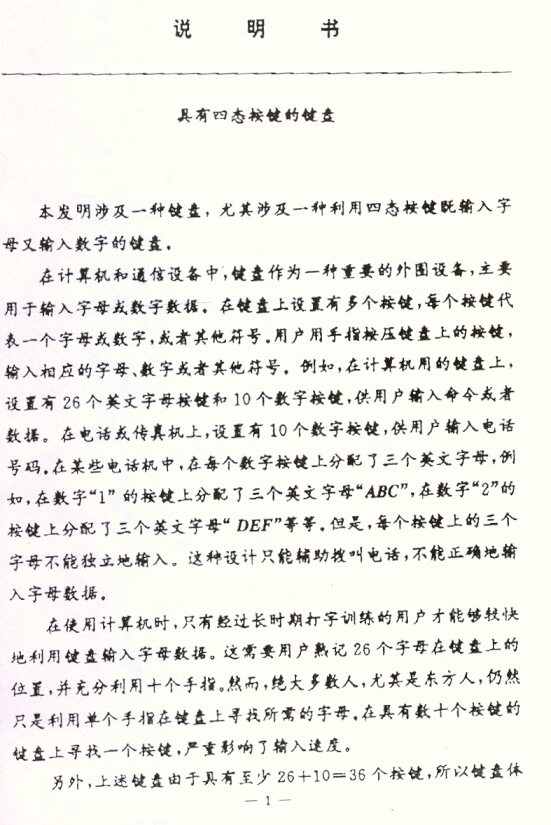 说 明 书
具有四态按键的键盘
本发明涉及一种键盘，尤其涉及一种利用四态按键既输入字
母又输入数字的键盘。
在计算机和通信设备中，键盘作为一种重要的外围设备，主要
用于输入字母或数字数据。在键盘上设置有多个按键，每个按键代
表一个字母或数字，或者其他符号。用户用手指按压键盘上的按键，
输入相应的字母、数字或者其他符号。例如，在计算机用的键盘上，
设置有26个英文字母按键和10个数字按键，供用户输入命令或者
数据。在电话或传真机上，设置有10个数字按键，供用户输入电话
号码。在某些电话机中，在每个数字按键上分配了三个英文字母，例
如，在数字“1”的按键上分配了三个英文字母“ABC”，在数字“2”的
按键上分配了三个英文字母“DEF”等等。但是，每个按键上的三个
字母不能独立地输入。这种设计只能辅助拨叫电话，不能正确地输
入字母数据。
在使用计算机时，只有经过长时期打字训练的用户才能够较快
地利用键盘输入字母数据。这需要用户熟记26个字母在键盘上的
位置，并充分利用十个手指。然而，绝大多数人，尤其是东方人，仍然
只是利用单个手指在键盘上寻找所需的字母。在具有数十个按键的
键盘上寻找一个按键，严重影响了输入速度。
另外，上述键盘由于具有至少26+10=36个按键，所以键盘体
— 1 —